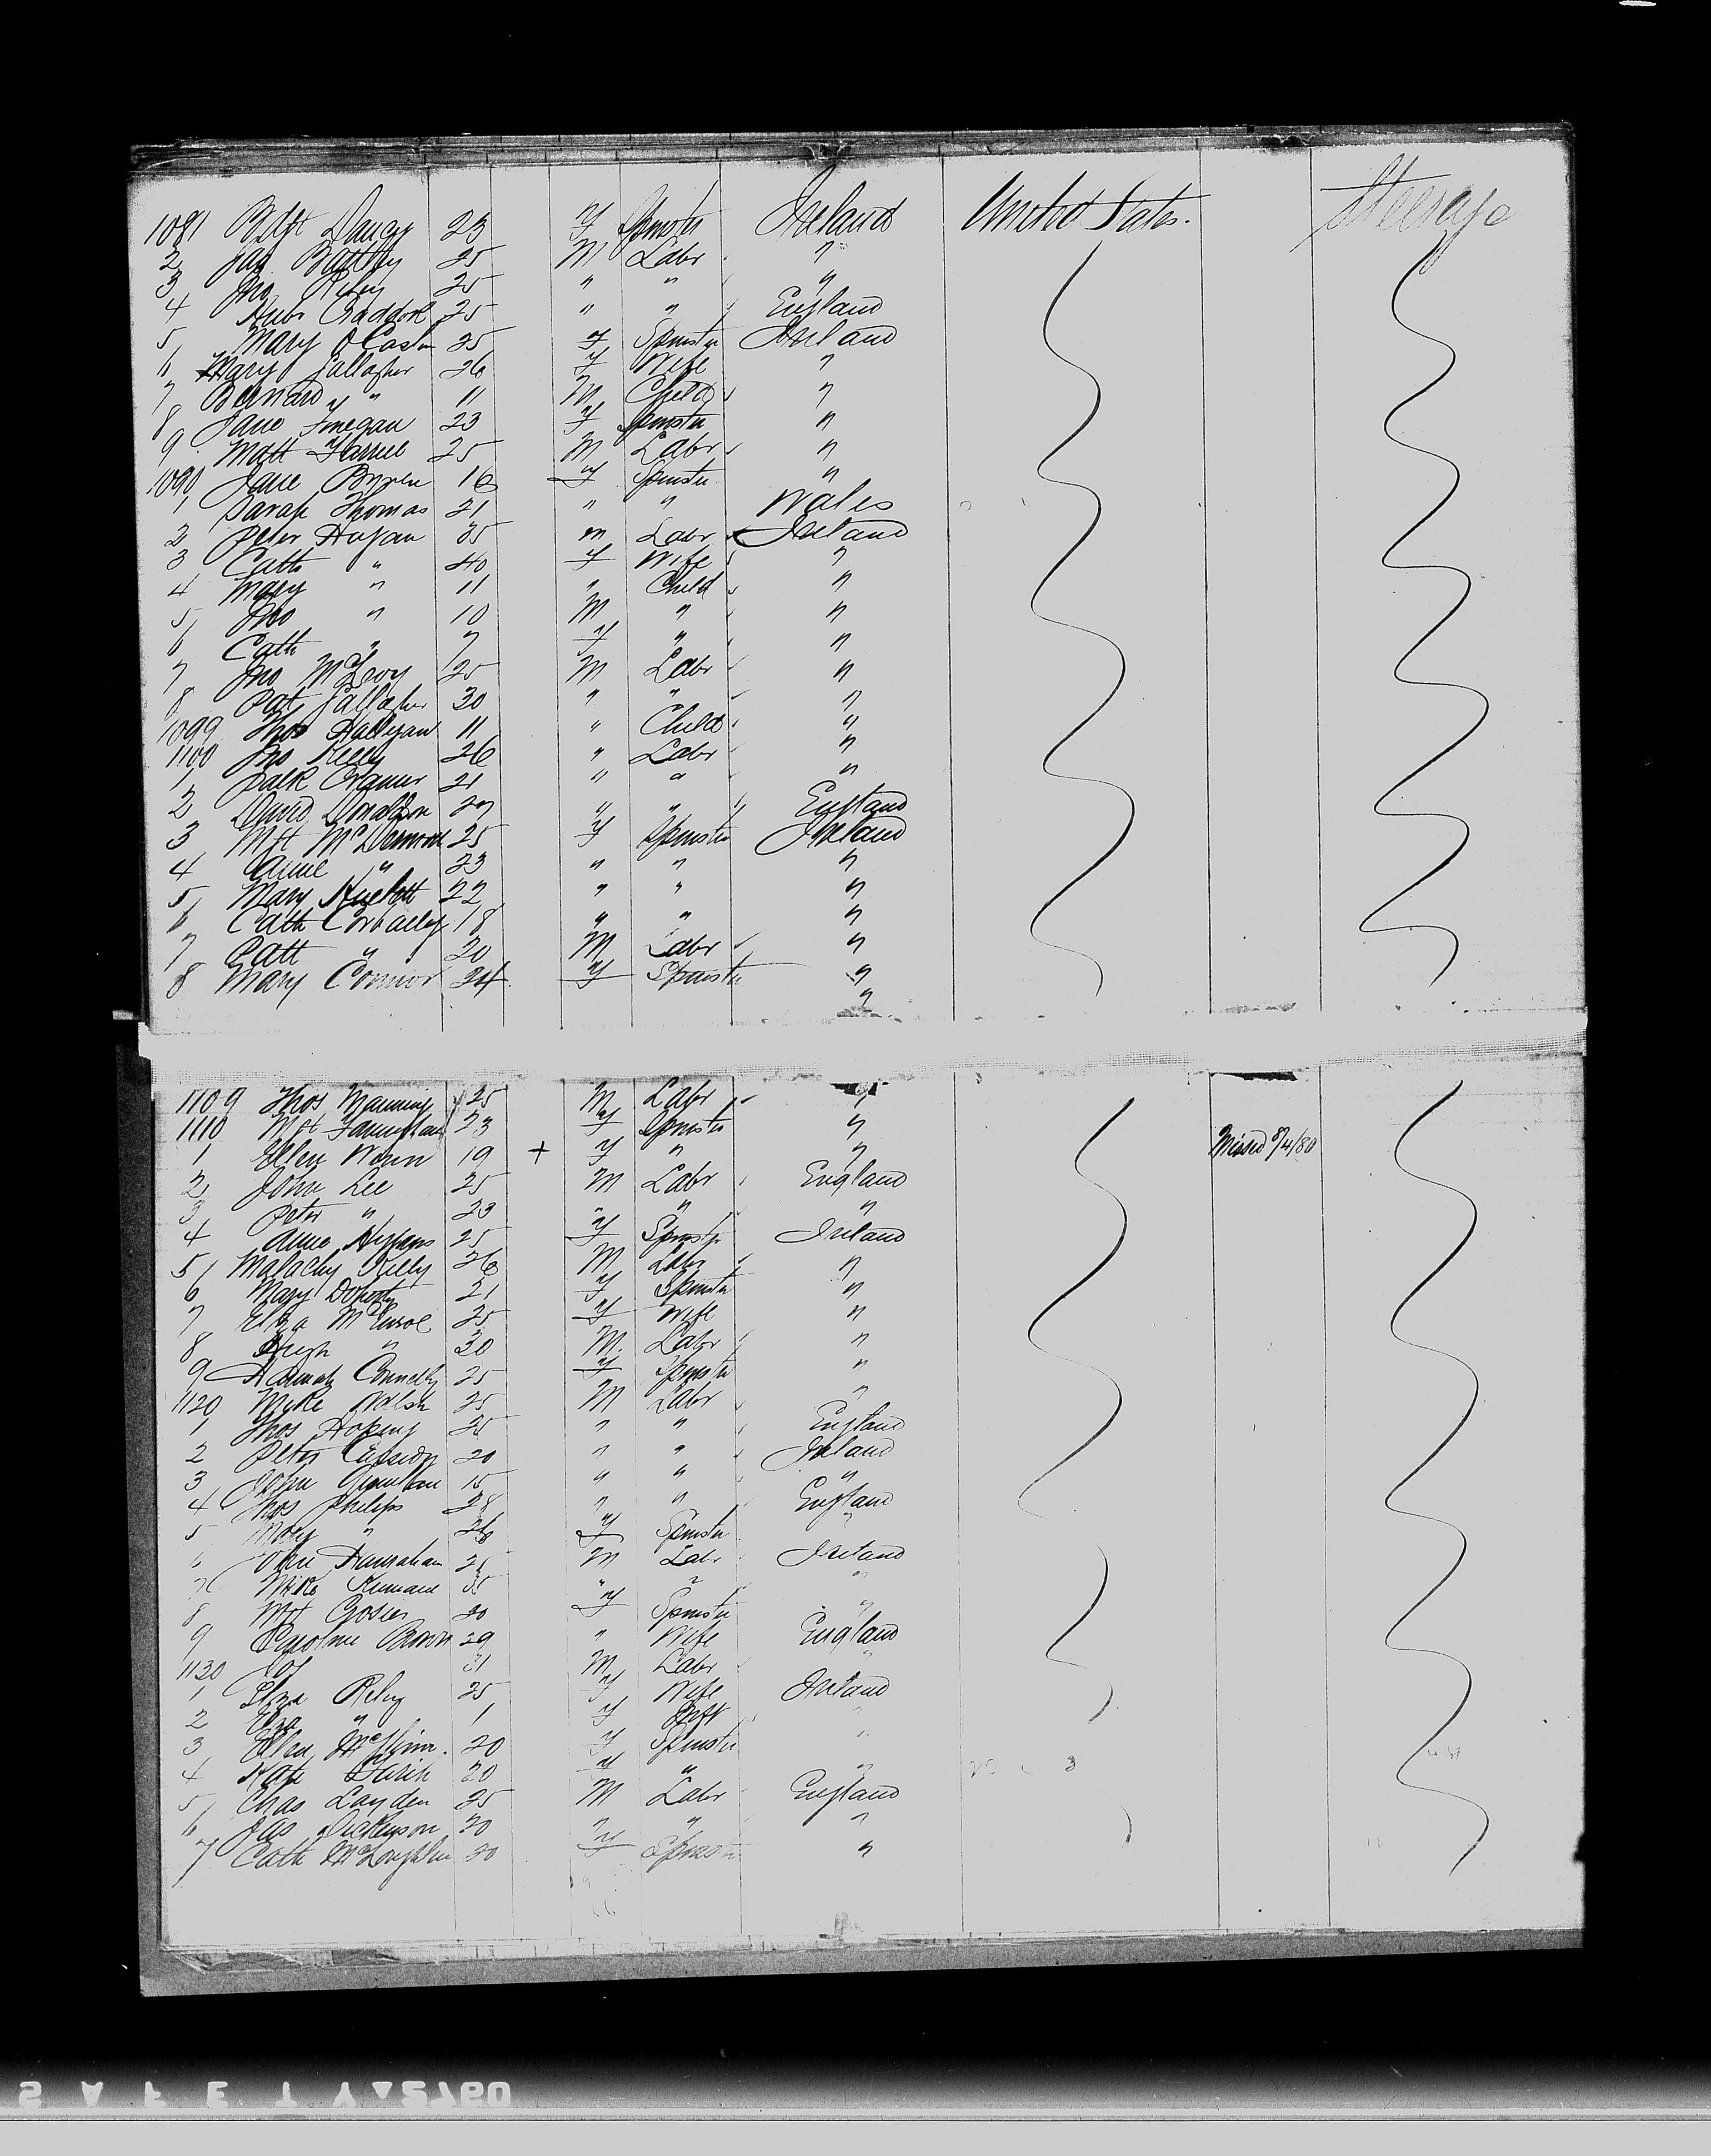 1081 Bdgt Dancy 23 F Spinstr Ireland United States. Steerage
2 Jas Battley 25 M Labr "
3 Jno Riley 25 " " "
4 Hubt Craddock 25 " " England
5 Mary O 25 F Spinstr Ireland
6 Mary Gallagher 26 F Wife "
7 Bernard " 11 M Child "
8 Jane Finegan 23 F Spinstr "
9 Matt 25 M Labr "
1090 Jane 16 F Spinstr "
1 Sarah Thomas 21 " " Wales
2 Peter Hagan 35 m Labr Ireland
3 Cath " 40 F Wife "
4 Mary " 11 " Child "
5 Jno " 10 M " "
6 Cath " 7 F " "
7 Jno McEvoy 25 M Labr "
8 Pat Gallagher 30 " " "
1099 Thos Halligan 11 " Child "
1100 Jno Kelly 26 " Labr "
1 Patk 21 " " "
2 David Donaldson 27 " " England
3 Mgt McDermott 25 F Spinstr Ireland
4 Anne " 23 " " "
5 Mary 22 " " "
6 Cath Corbally 18 " " "
7 Patt " 20 M Labr "
8 Mary Connor 24 F Spinstr "
"
1109 Thos Manning 25 M Labr "
1110 Mgt 23 F Spinstr "
1 Ellen 19 + F " " Missed 8/4/80
2 John Lee 25 M Labr England
3 Peter " 23 " " "
4 Anne 25 F Spinstr Ireland
5 Malachy Kelly 26 M Labr "
6 Mary Doherty 21 F Spinstr "
7 Eliza McEnroe 25 F Wife "
8 Hugh " 30 M. Labr "
9 Hannah Connelly 25 F Spinstr "
1120 Mike Walsh 25 M Labr "
1 Thos 25 " " England
2 Peter Cassidy 20 " " Ireland
3 John 15 " " "
4 Thos Philips 28 " " England
5 Mary " 26 F Spinstr "
6 John Hanrahan 25 M Labr Ireland
7 Mike 35 " " "
8 Mgt 20 F Spinstr "
9 Caroline Brown 29 " Wife England
1130 Jos 31 M Labr "
1 Eliza Riley 25 F Wife Ireland
2 Eliza " 1 F Inft "
3 Ellen 20 F Spinstr "
4 Kate 20 F " "
5 Chas Layden 25 M Labr England
6 Jas Dickenson 20 " " "
7 Cath McLoughlin 20 F Spinstr "
SAFETY 5760